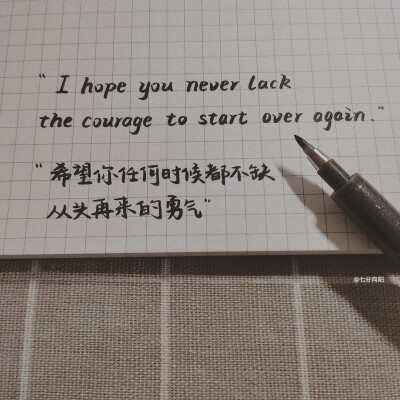 "I hope you never lack
the courage to start over again."
"希望你任何时候都不缺
从头再来的勇气"
@七分向阳